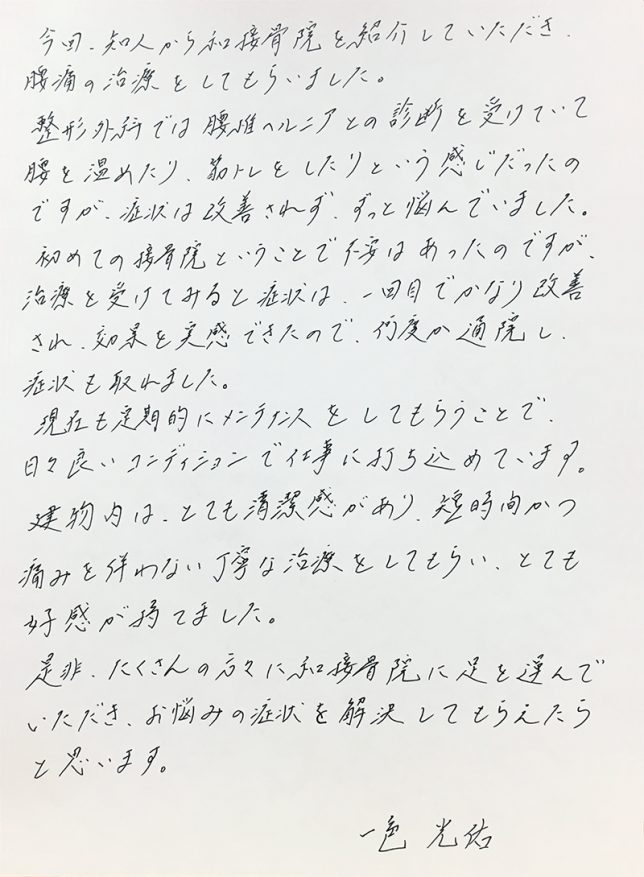 今回、知人から和接骨院を紹介していただき、
腰痛の治療をしてもらいました。
整形外科では腰椎ヘルニアとの診断を受けていて
腰を温めたり、筋トレをしたりという感じだったの
ですが、症状は改善されず、ずっと悩んでいました。
初めての接骨院ということで不安はあったのですが、
治療を受けてみると症状は、一回目でかなり改善
され、効果を実感できたので、何度か通院し、
症状も取れました。
現在も定期的にメンテナンスをしてもらうことで、
日々良いコンディションで仕事に打ち込めています。
建物内は、とても清潔感があり、短時間かつ
痛みを伴わない丁寧な治療をしてもらい、とても
好感が持てました。
是非、たくさんの方々に和接骨院に足を運んで
いただき、お悩みの症状を解決してもらえたら
と思います。
一色 光佑